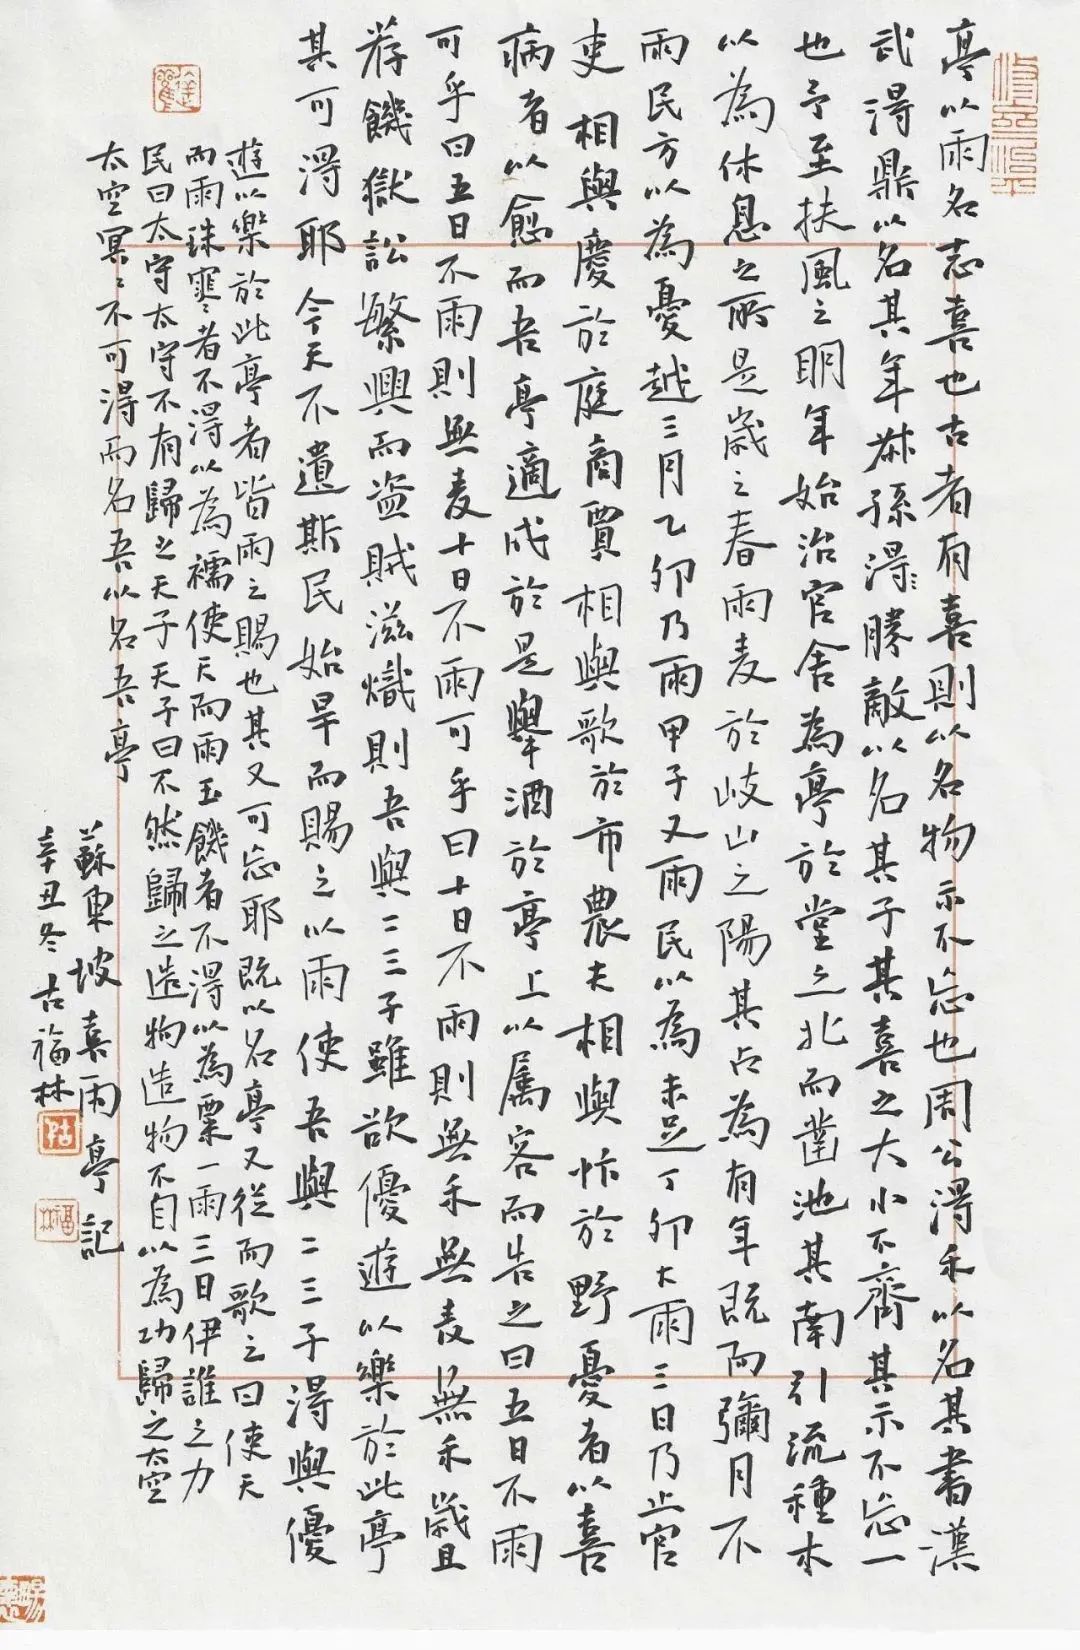 亭以雨名志喜也古者有喜則以名物示不忘也周公得禾以名其書漢
武得鼎以名其年叔孫得〻勝敵以名其子其喜之大小不齊其示不忘一
也予至扶風之明年始治官舍為亭於堂之北而鑿池其南引流種木
以為休息之所是歲之春雨麦於岐山之陽其占為有年既而彌月不
雨民方以為憂越三月乙卯乃雨甲子又雨民以為未足丁卯大雨三日乃止官
吏相與慶於庭商賈相與歌於市農夫相與忭於野憂者以喜
病者以愈而吾亭適成於是舉酒於亭上以属客而告之曰五日不雨
可乎曰五日不雨則無麦十日不雨可乎曰十日不雨則無禾無麦無禾歲且
荐饑獄訟繁興而盗賊滋熾則吾與二三子雖欲優遊以樂於此亭
其可得耶今天不遺斯民始旱而賜之以雨使吾與二三子得與優
遊以樂於此亭者皆雨之賜也其又可忘耶既以名亭又從而歌之曰使天
而雨珠寒者不得以為襦使天而雨玉饑者不得以為粟一雨三日伊誰之力
民曰太守太守不有歸之天子天子曰不然歸之造物造物不自以為功歸之太空
太空冥〻不可得而名吾以名吾亭
蘇東坡喜雨亭記
辛丑冬古福林